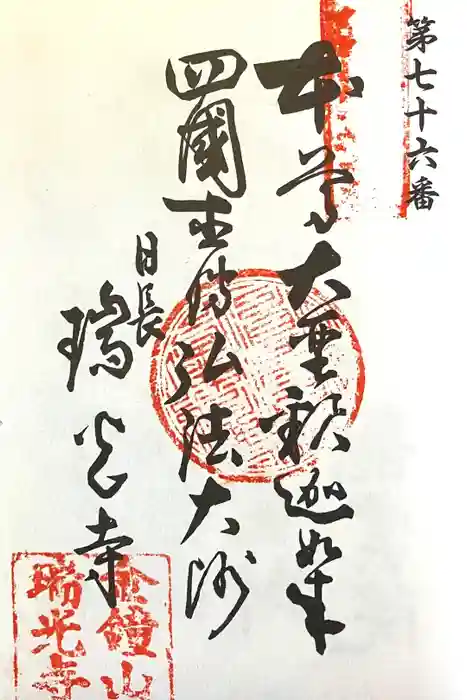 第七十六番
本尊大聖釈迦如来
四國直伝弘法大師
日長
瑞光寺
金鐘山
瑞光寺